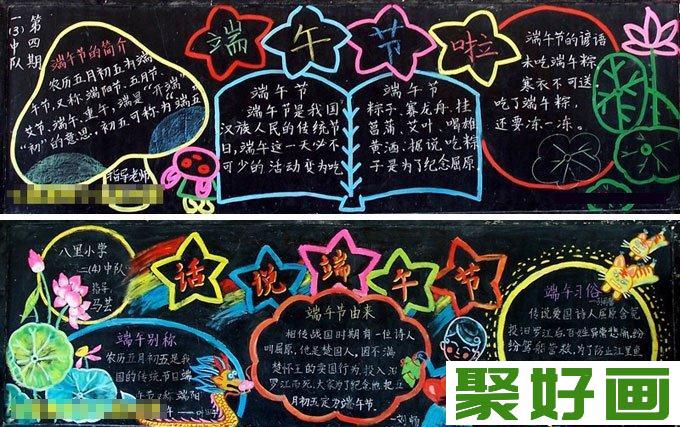 第四期
一(3)中队
端午节的简介
农历五月初五为端
午节,又称端阳节、五月节、
艾节、端午、重午,端是“开端”
“初”的意思,初五可称为端五
指导老师
端午节啦
端午节
端午节是我国
汉族人民的传统节
日,端午这一天必不
可少的活动变为吃
端午节
粽子、赛龙舟、挂
昌蒲、艾叶、喝雄
黄酒,据说,吃粽
子是为了纪念屈原
端午节的谚语
未吃端午粽,
寒衣不可送,
吃了端午粽,
还要冻一冻。
八里小学
二(4)中队
指导
马芸
话说端午节
端午别称
农历五月初五是我
国的传统节日端
午节又称端阳
端午节由来
相传战国时期有一位诗人
叫屈原,他是楚国人,因不满
楚怀王的卖国行为,投入汨
罗江而死,大家为了纪念他把五
月初五定为端午节。
端午习俗
传说爱国诗人屈原含冤
投汨罗江后,百姓异常悲恸,纷
纷驾船营救,为了防止江里鱼
聚好画